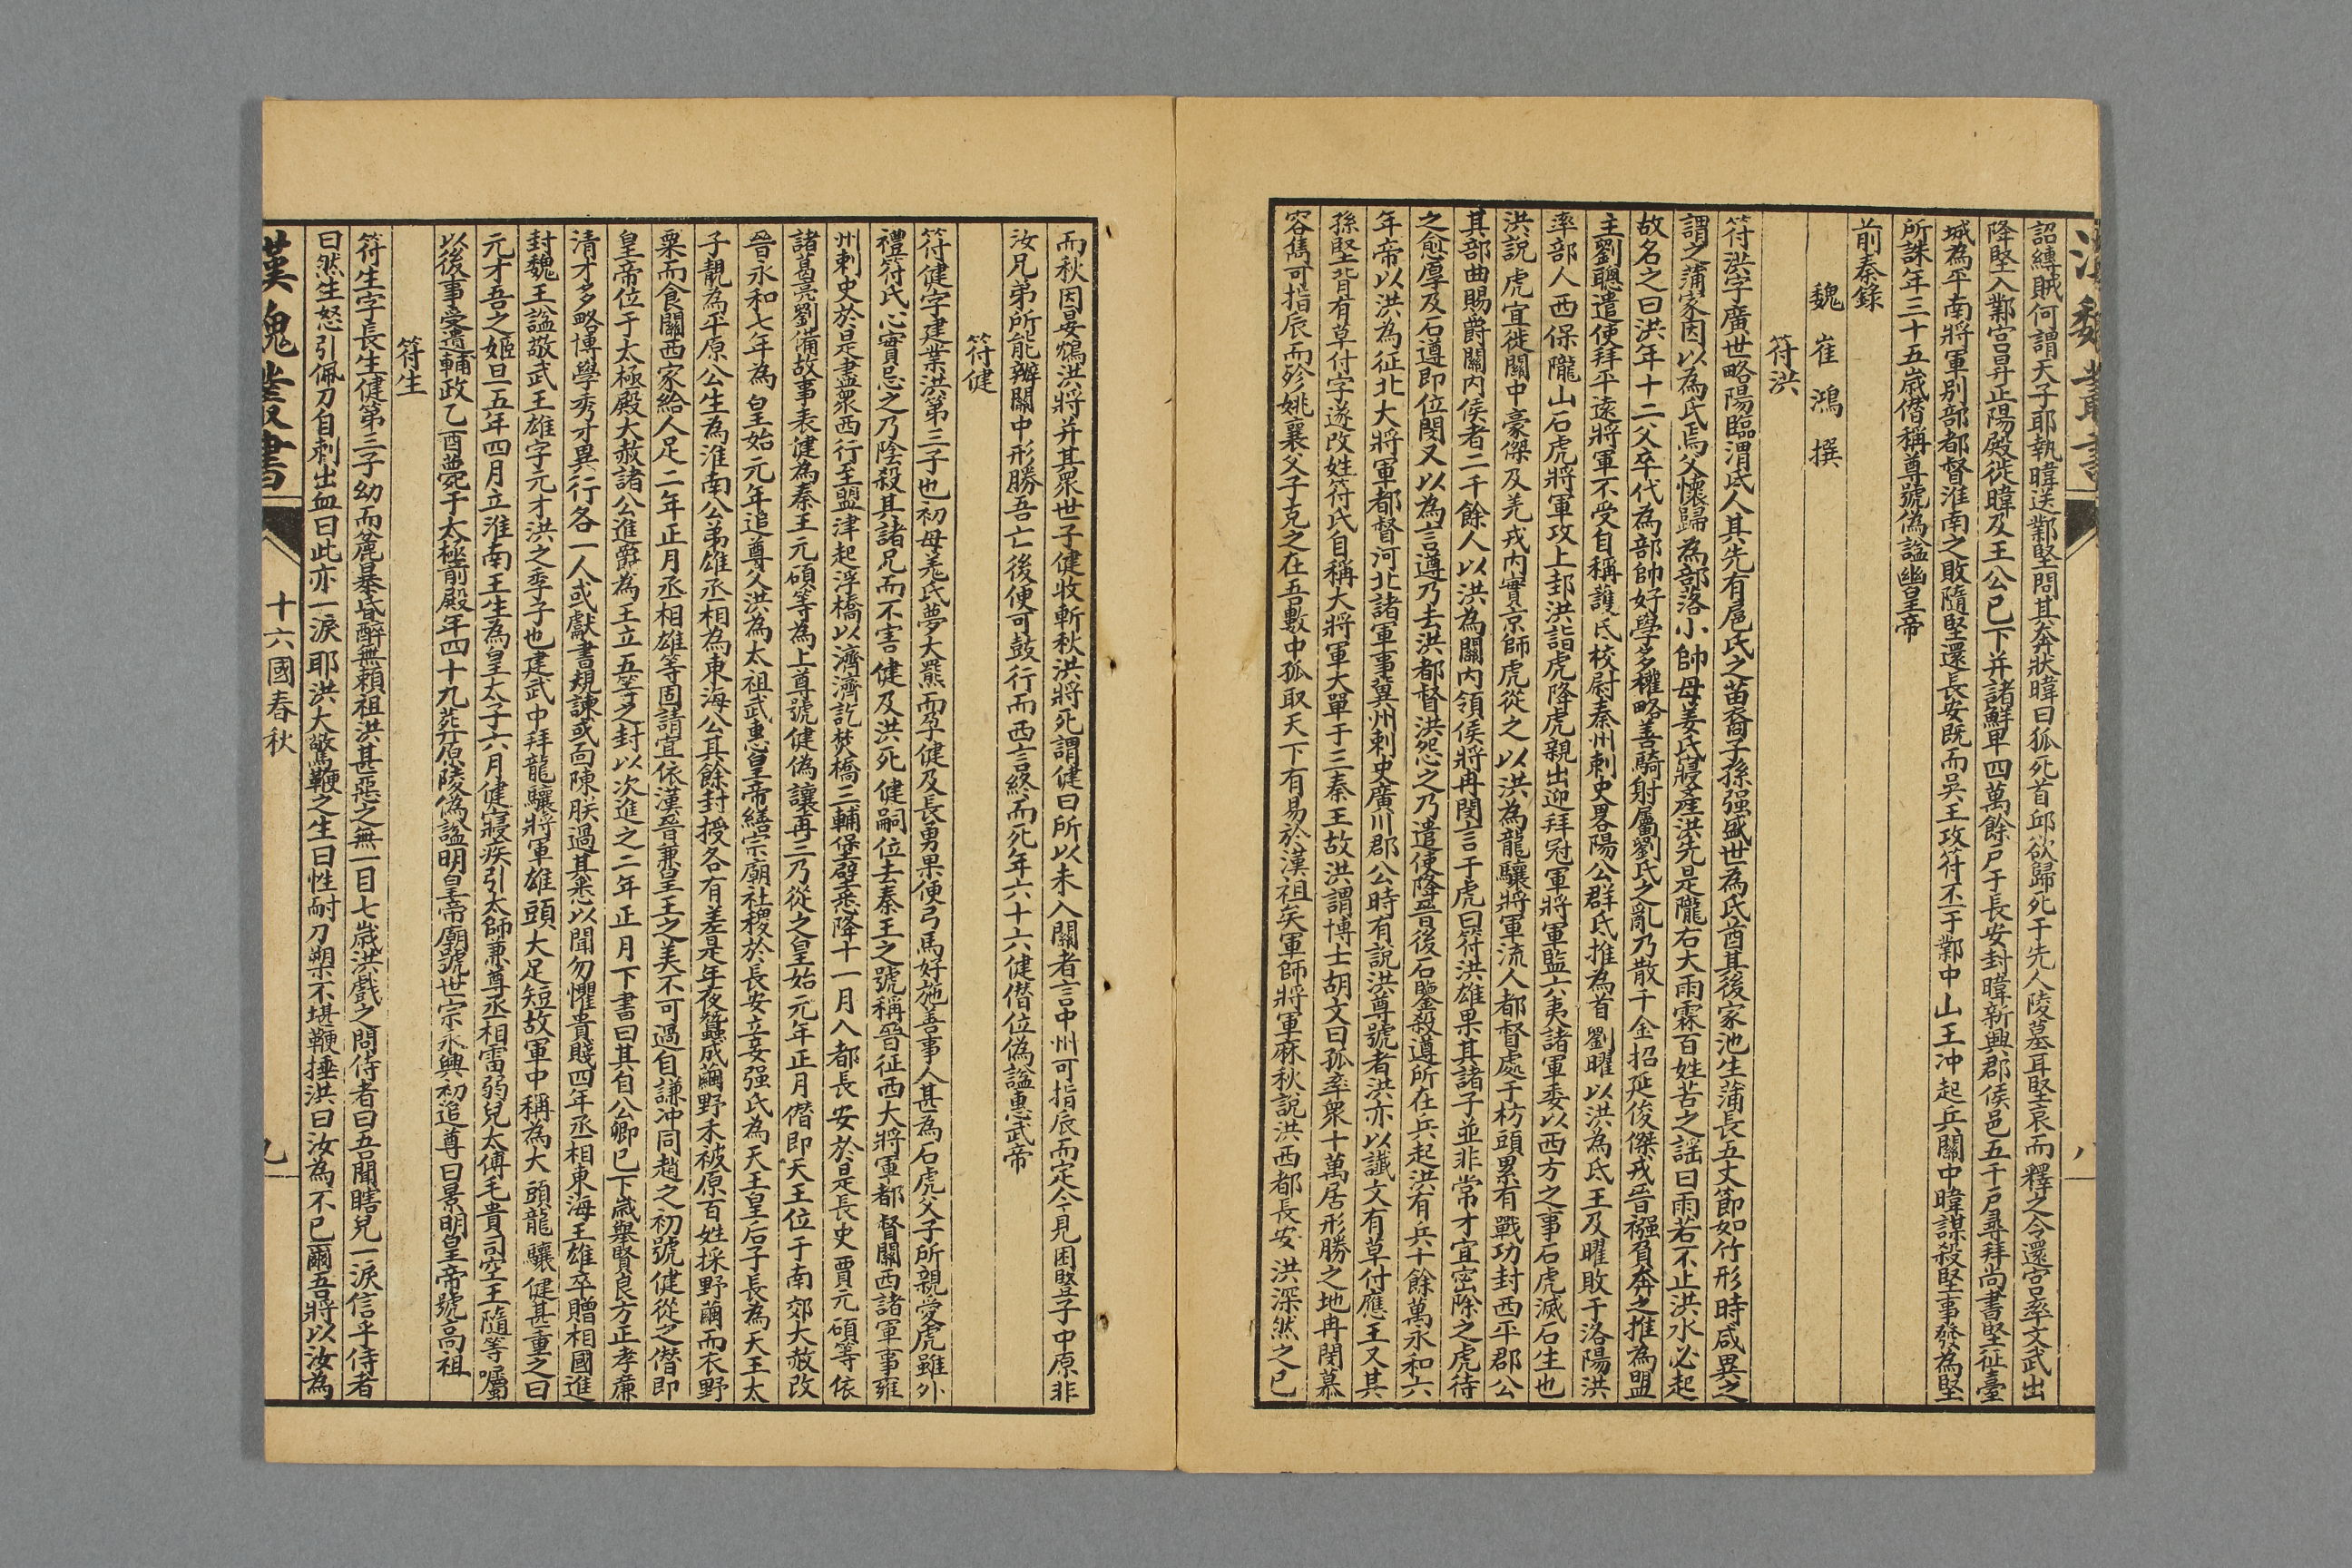 詔縛賊何謂天子耶執暐送鄴堅問其奔狀暐曰狐死首邱欲歸死于先人陵墓耳堅哀而釋之令還宮率文武出
降堅入鄴宮昇正陽殿徙暐及王公已下并諸鮮卑四萬餘戶于長安封暐新興郡侯邑五千戶尋拜尚書堅征臺
城為平南將軍別部都督淮南之敗隨堅還長安既而吳王攻苻丕于鄴中山王冲起兵關中暐謀殺堅事發為堅
所誅年三十五歲僭稱尊號偽諡幽皇帝
前秦錄
魏 崔鴻 撰
符洪
符洪字廣世略陽臨渭氐人其先有扈氏之苗裔子孫强盛世為氐酋其後家池生蒲長五丈節如竹形時咸異之
謂之蒲家因以為氏焉父懷歸為部落小帥母姜氏寢產洪先是隴右大雨霖百姓苦之謡曰雨若不止洪水必起
故名之曰洪年十二父卒代為部帥好學多權略善騎射屬劉氏之亂乃散千金招延俊傑戎晉襁負奔之推為盟
主劉聰遣使拜平遠將軍不受自稱護氐校尉秦州刺史畧陽公群氐推為首劉曜以洪為氐王及曜敗于洛陽洪
率部人西保隴山石虎將軍攻上邽洪詣虎降虎親出迎拜冠軍將軍監六夷諸軍委以西方之事石虎滅石生也
洪說虎宜徙關中豪傑及羌戎内實京師虎從之以洪為龍驤將軍流人都督處于枋頭累有戰功封西平郡公
其部曲賜爵關内侯者二千餘人以洪為關内領侯將冉閔言于虎曰符洪雄果其諸子並非常才宜密除之虎待
之愈厚及石遵即位閔又以為言遵乃去洪都督洪怨之乃遣使降晉後石鑒殺遵所在兵起洪有兵十餘萬永和六
年帝以洪為征北大將軍都督河北諸軍事冀州刺史廣川郡公時有說洪尊號者洪亦以讖文有草付應王又其
孫堅背有草付字遂改姓符氏自稱大將軍大單于三秦王故洪謂博士胡文曰孤率衆十萬居形勝之地冉閔慕
容儁可指辰而殄姚襄父子克之在吾數中孤取天下有易於漢祖矣軍師將軍麻秋說洪西都長安洪深然之已
而秋因晏鴆洪將并其衆世子健收斬秋洪將死謂健曰所以未入關者言中州可指辰而定今見困竪子中原非
汝兄弟所能辦關中形勝吾亡後便可鼓行而西言終而死年六十六健僭位偽諡惠武帝
符健
符健字建業洪第三子也初母羌氏夢大羆而孕健及長勇果便弓馬好施善事人甚為石虎父子所親愛虎雖外
禮符氏心實忌之乃陰殺其諸兄而不害健及洪死健嗣位去秦王之號稱晉征西大將軍都督關西諸軍事雍
州刺史於是盡衆西行至盟津起浮橋以濟濟訖焚橋三輔堡壁悉降十一月入都長安於是長史賈元碩等依
諸葛亮劉備故事表健為秦王元碩等為上尊號健偽讓再三乃從之皇始元年正月僭即天王位于南郊大赦改
晉永和七年為皇始元年追尊父洪為太祖武惠皇帝繕宗廟社稷於長安立妾强氏為天王皇后子長為天王太
子靚為平原公生為淮南公弟雄丞相為東海公其餘封授各有差是年夜蠶成繭野禾被原百姓採野繭而衣野
粟而食關西家給人足二年正月丞相雄等固請宜依漢晉兼皇王之美不可過自謙冲同趙之初號健從之僭即
皇帝位于太極殿大赦諸公進爵為王立五等之封以次進之二年正月下書曰其自公卿已下歲舉賢良方正孝廉
清才多略博學秀才異行各一人或獻書規諫或面陳朕過其悉以聞勿懼貴賤四年丞相東海王雄卒贈相國進
封魏王諡敬武王雄字元才洪之季子也建武中拜龍驤將軍雄頭大足短故軍中稱為大頭龍驤健甚重之曰
元才吾之姬旦五年四月立淮南王生為皇太子六月健寢疾引太師兼尊丞相雷弱兒太傅毛貴司空王隨等囑
以後事受遺輔政乙酉薨于太極前殿年四十九葬原陵偽諡明皇帝廟號世宗永興初追尊曰景明皇帝號高祖
符生
符生字長生健第三子幼而麄暴昏醉無賴祖洪甚惡之無一目七歲洪戲之問侍者曰吾聞瞎兒一淚信乎侍者
曰然生怒引佩刀自刺出血曰此亦一淚耶洪大驚鞭之生曰性耐刀槊不堪鞭捶洪曰汝為不已爾吾將以汝為
漢魏叢書 十六國春秋 九